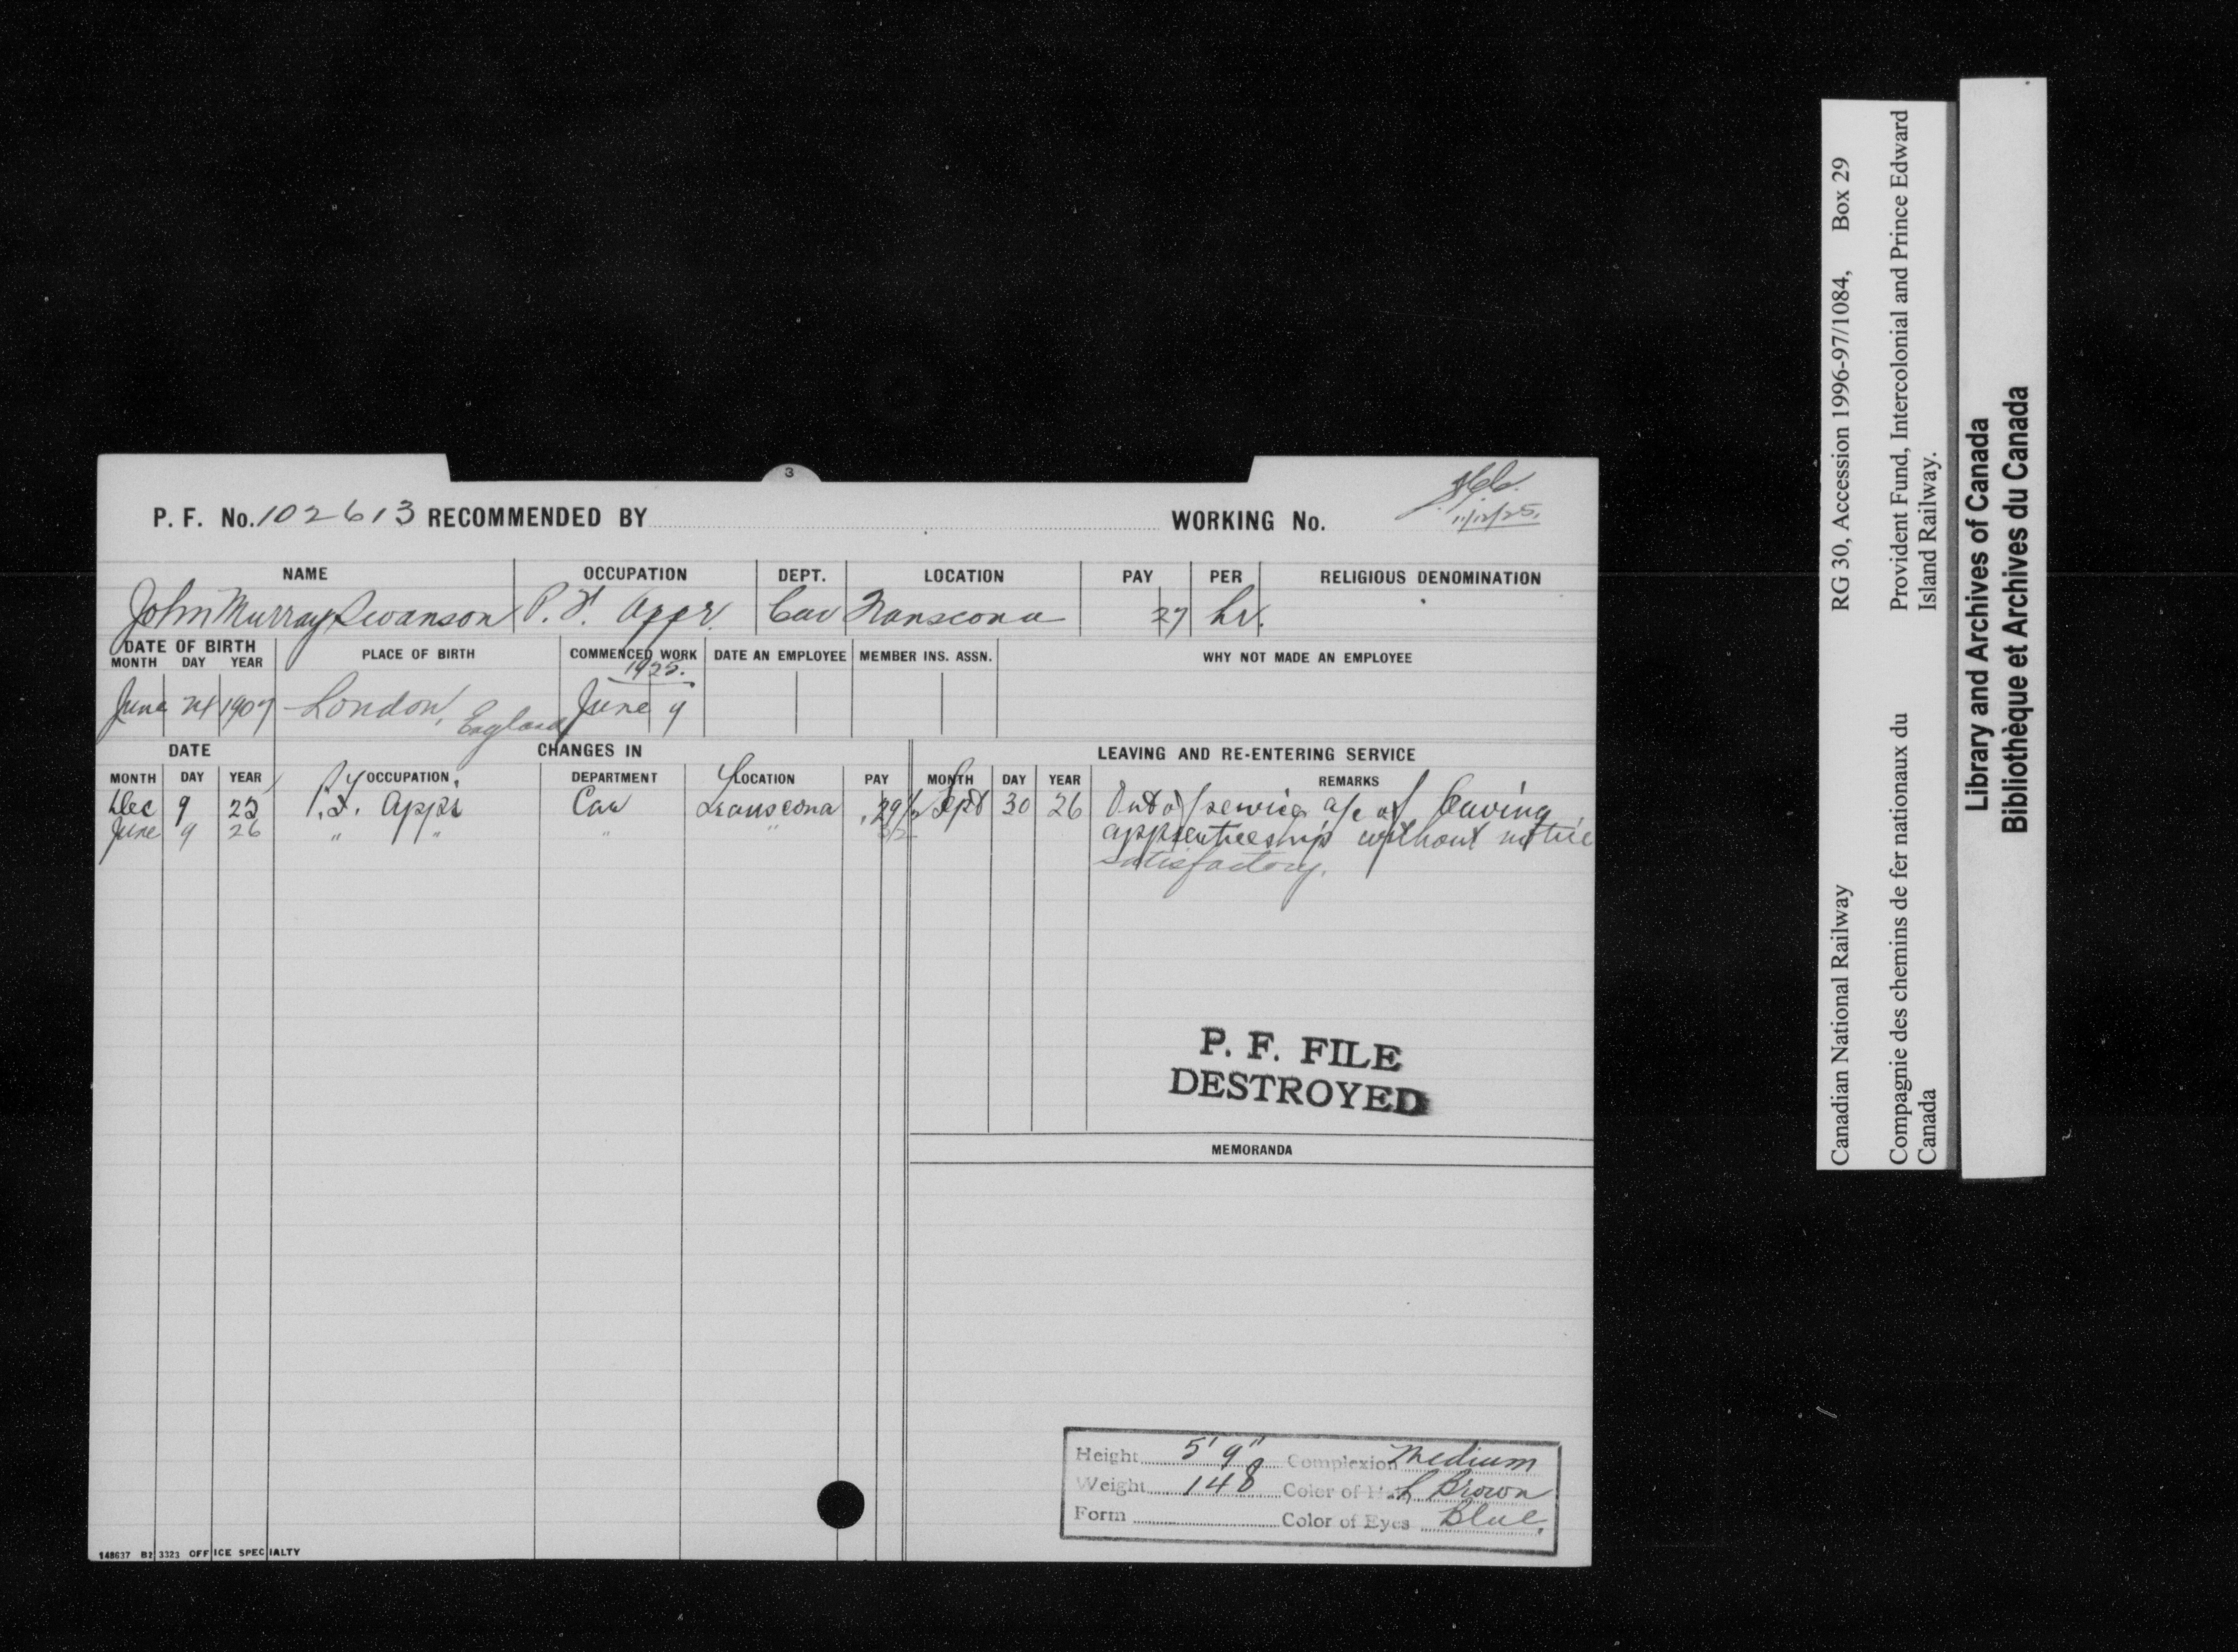 3
P. F. No. 102613 RECOMMENDED BY WORKING No.
11/12/25.
NAME OCCUPATION DEPT. LOCATION PAY PER RELIGIOUS DENOMINATION
John Murray Swanson P.F. Appr. Car Transcona 27 hr.
DATE OF BIRTH PLACE OF BIRTH COMMENCED WORK DATE AN EMPLOYEE MEMBER INS. ASSN. WHY NOT MADE AN EMPLOYEE
MONTH DAY YEAR
1925.
June 24 1907 London, England June 9
DATE CHANGES IN LEAVING AND RE-ENTERING SERVICE
MONTH DAY YEAR OCCUPATION DEPARTMENT LOCATION PAY MONTH DAY YEAR REMARKS
Dec 9 25 P.F. Appr Car Transcona .29½ Sept 30 26 Out of service a/c of leaving
June 9 26 " " " " 32 apprenticeship without notice
satisfactory.
P. F. FILE
DESTROYED
MEMORANDA
Height 5' 9" Complexion Medium
Weight 148 Color of Hair L Brown
Form Color of Eyes Blue.
148637 B2 3323 OFFICE SPECIALTY
Canadian National Railway RG 30, Accession 1996-97/1084, Box 29
Compagnie des chemins de fer nationaux du Canada
Provident Fund, Intercolonial and Prince Edward Island Railway.
Library and Archives of Canada
Bibliothèque et Archives du Canada